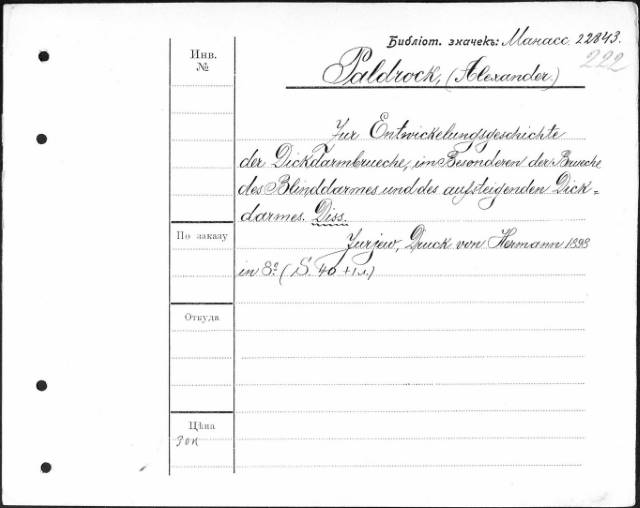 Библіот. значекъ: Манасс. 22843.
222
Инв.
№
Paldrock, (Alexander.)
Zur Entwickelungsgeschichte
der Dickdarmbrueche, im Besonderen der Brueche
des Blinddarmes und des aufsteigenden Dick=
darmes. Diss.
По заказу
Jurjew, Druck von Hermann 1898
in 8º. (S. 40 + 1 л.)
Откуда
Цѣна